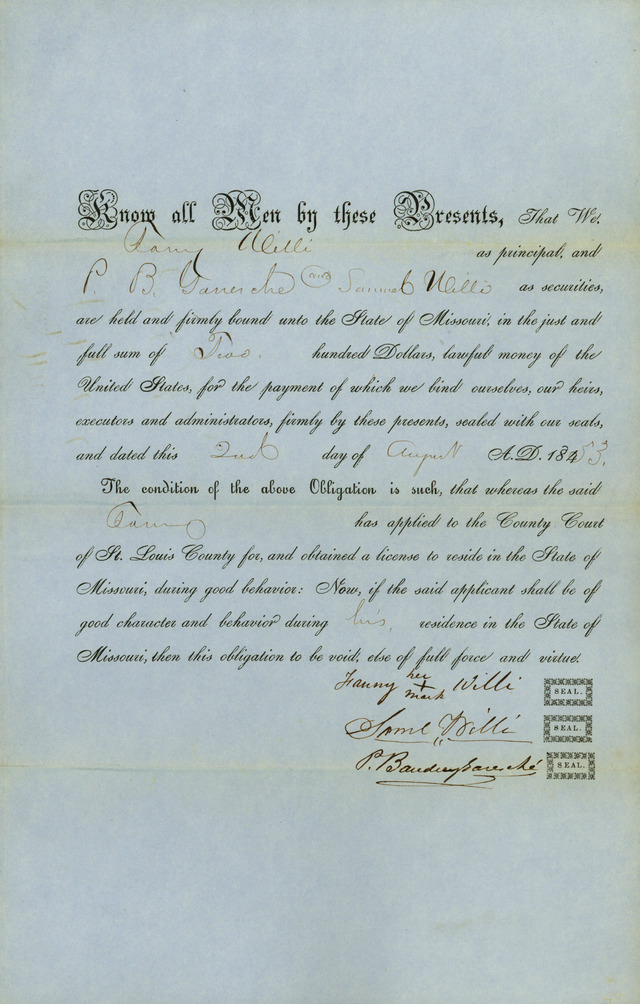 Know all Men by these Presents, That We,
Fanny Willi as principal, and
P. B. Garesche and Samuel Willi as securities,
are held and firmly bound unto the State of Missouri, in the just and
full sum of Two hundred Dollars, lawful money of the
United States, for the payment of which we bind ourselves, our heirs,
executors and administrators, firmly by these presents, sealed with our seals,
and dated this 2nd day of August A.D. 1853.
The condition of the above Obligation is such, that whereas the said
Fanny has applied to the County Court
of St. Louis County for, and obtained a license to reside in the State of
Missouri, during good behavior: Now, if the said applicant shall be of
good character and behavior during his residence in the State of
Missouri, then this obligation to be void, else of full force and virtue.
Fanny her + mark Willi SEAL.
Saml Willi SEAL.
P. Bauduy Garesché SEAL.